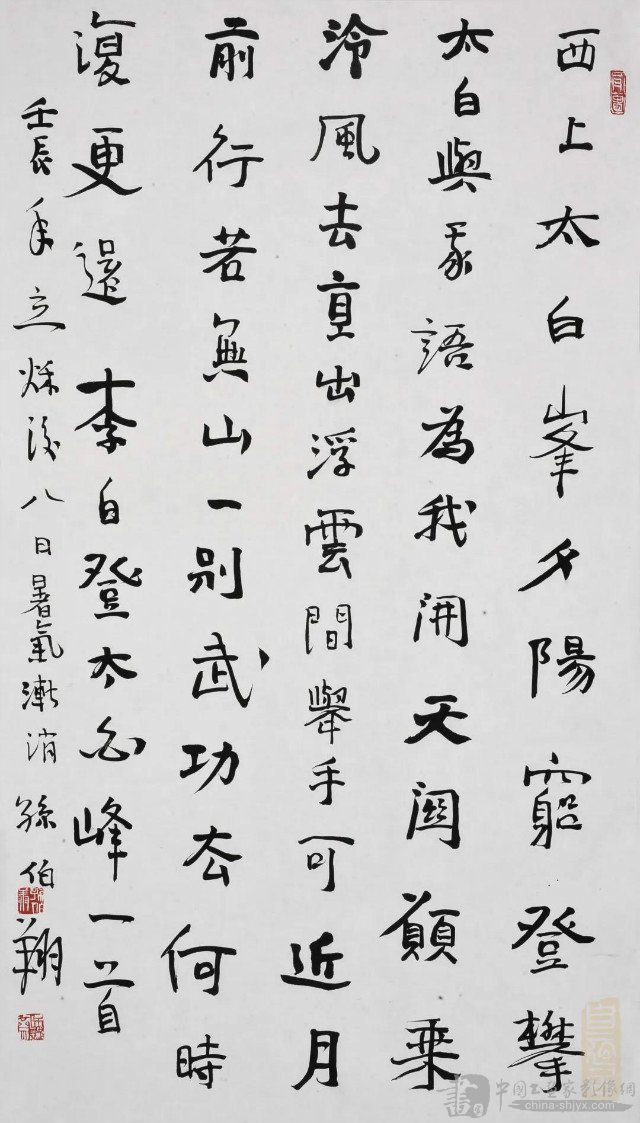 西上太白峯夕陽窮登攀
太白與我語為我開天關願乘
泠風去直出浮雲間舉手可近月
前行若無山一別武功去何時
復更還李白登太白峰一首
壬辰年立秋後八日暑氣漸消孫伯翔
中國書畫家影像網
china-shjyx.com